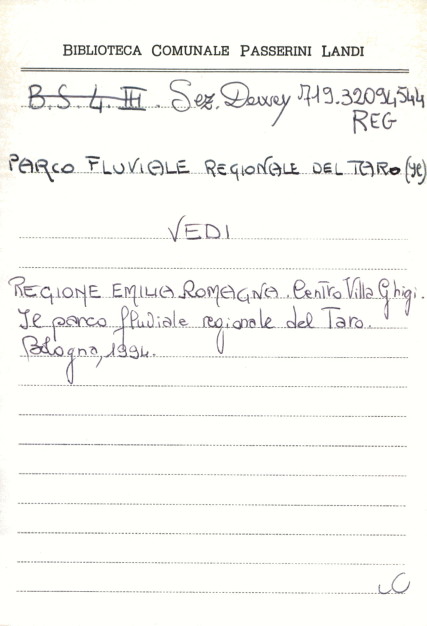 BIBLIOTECA COMUNALE PASSERINI LANDI
B.S. 4. III. Sez. Dewey 719.32094544
REG
PARCO FLUVIALE REGIONALE DEL TARO (Il)
VEDI
REGIONE EMILIA ROMAGNA. Centro Villa Ghigi.
Il parco fluviale regionale del Taro.
Bologna, 1994.